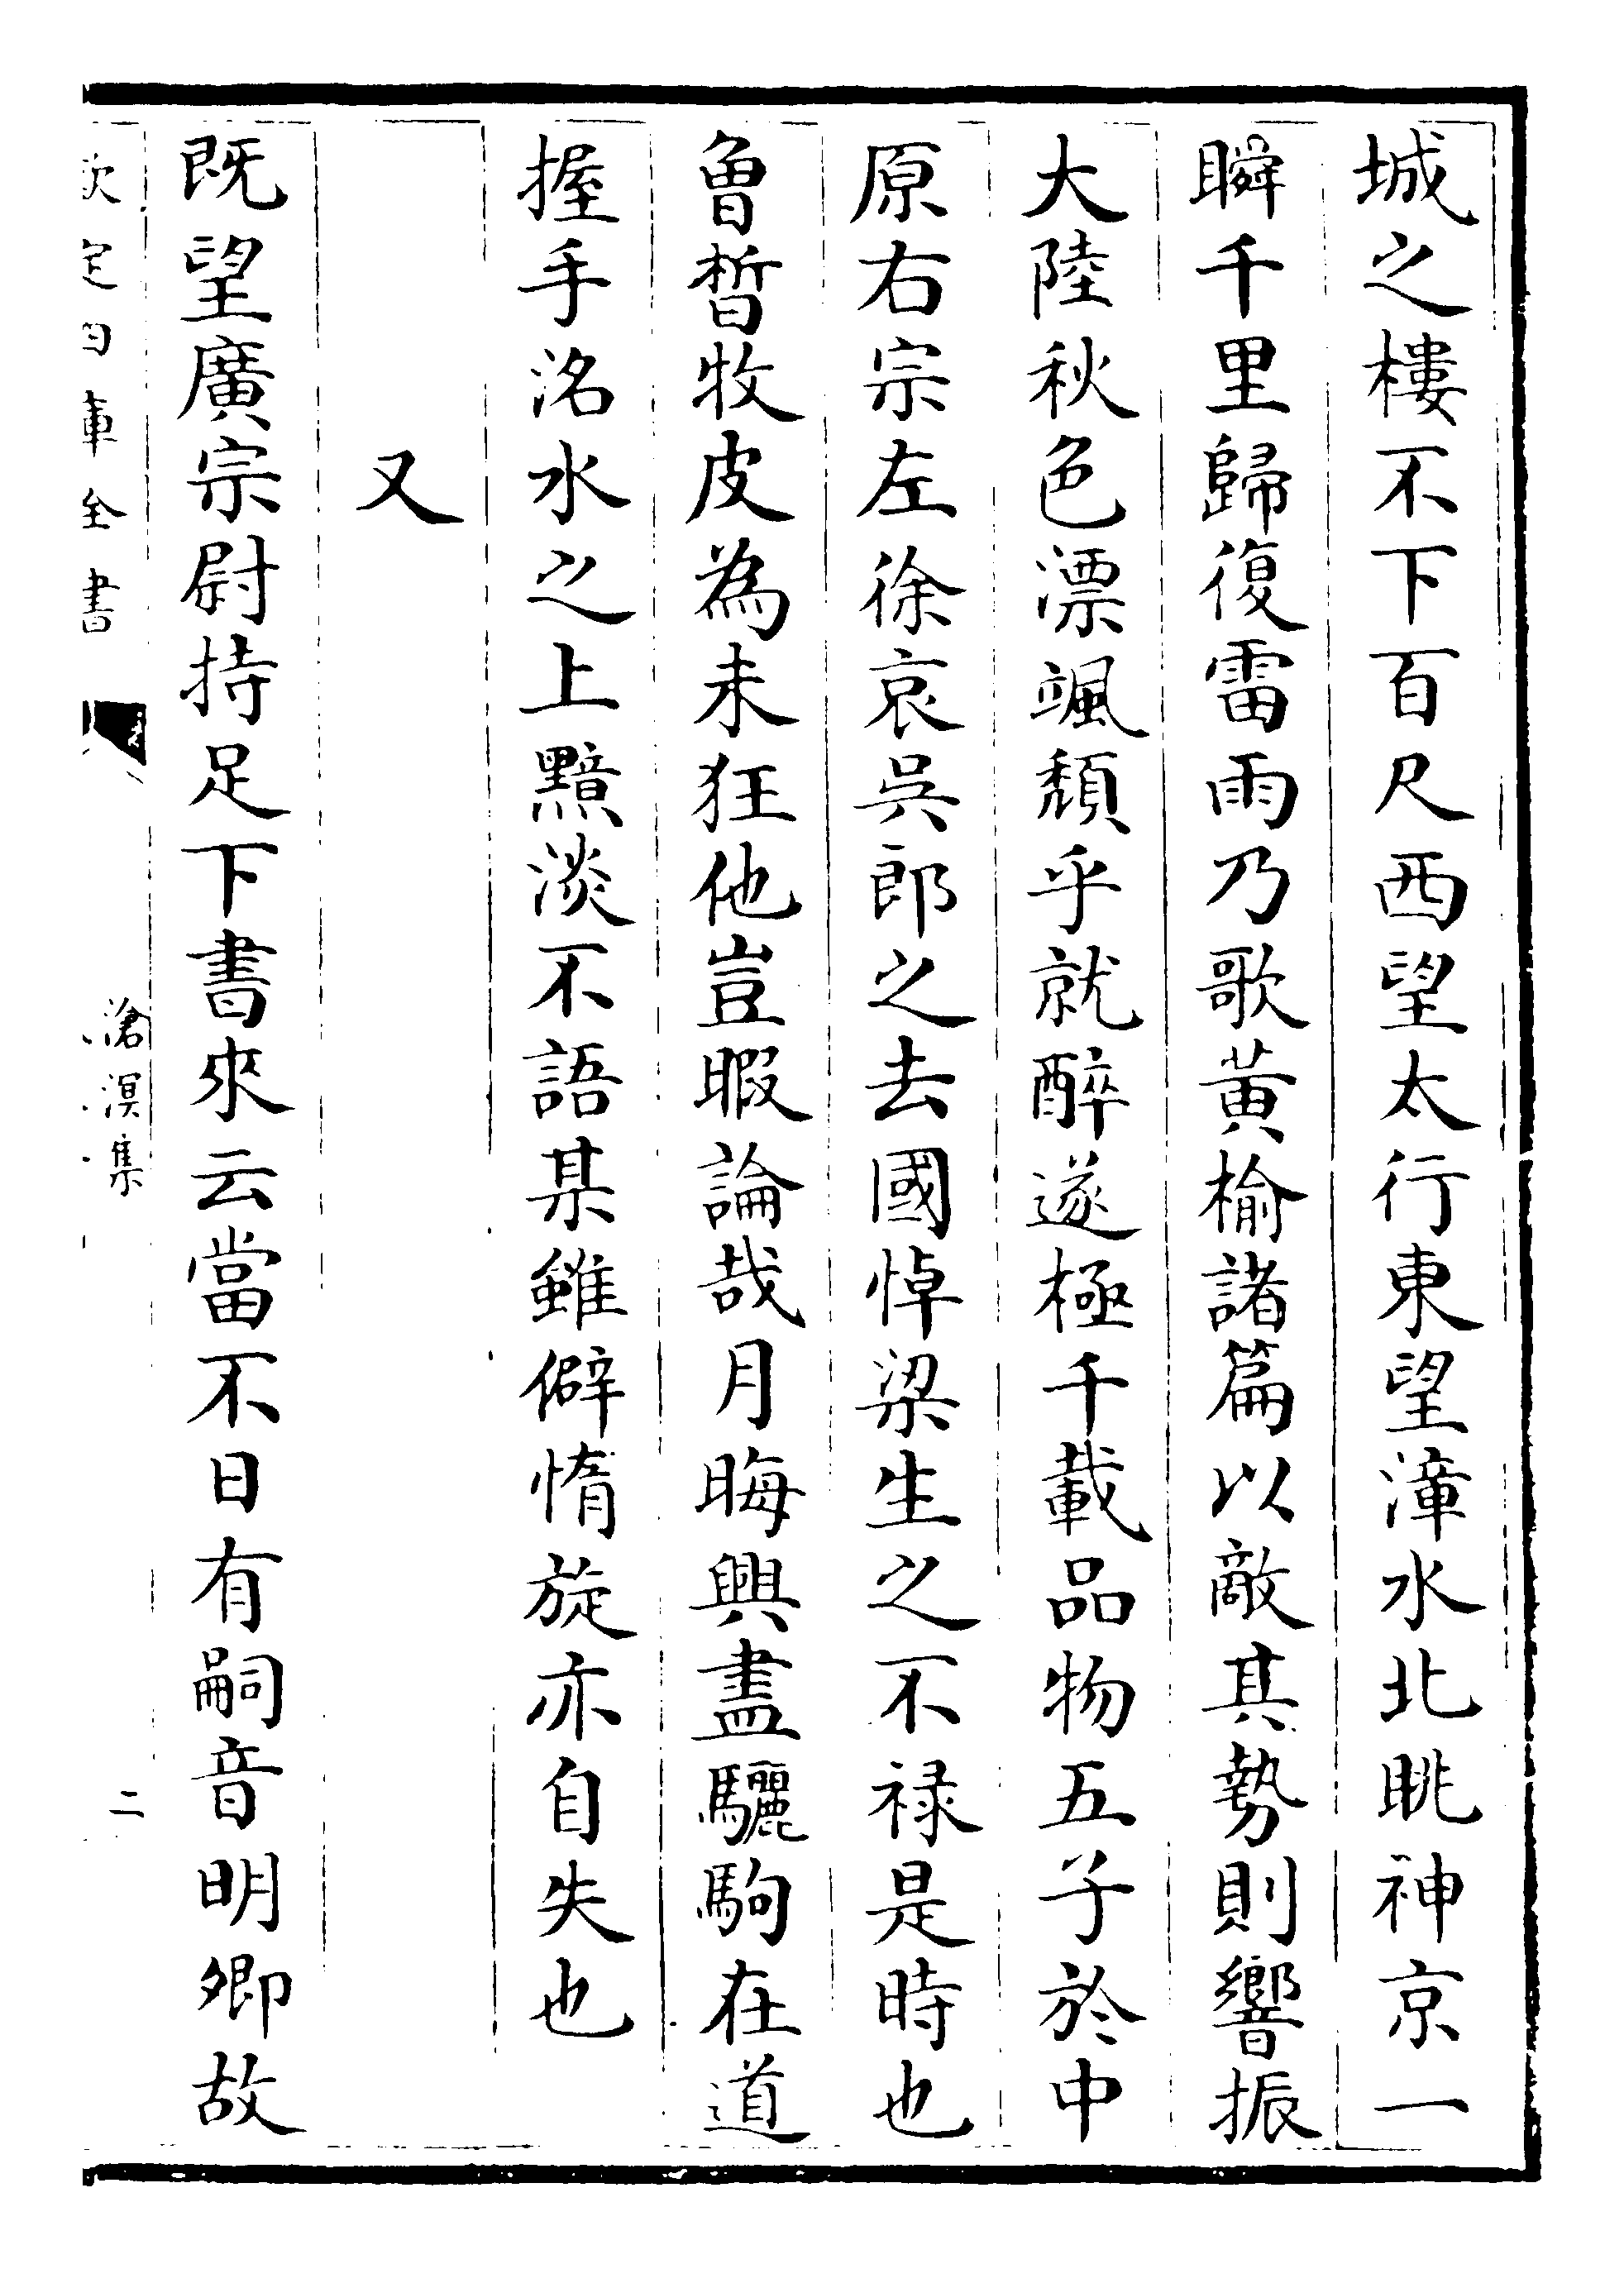 城之樓不下百尺西望太行東望漳水北眺神京一
瞬千里歸復雷雨乃歌黃榆諸篇以敵其勢則響振
大陸秋色漂颯頹乎就醉遂極千載品物五子於中
原右宗左徐哀吳郎之去國悼梁生之不禄是時也
魯晳牧皮為未狂他豈暇論哉月晦興盡驪駒在道
握手洺水之上黯淡不語某雖僻惰旋亦自失也
又
既望廣宗尉持足下書來云當不日有嗣音明卿故
欽定四庫全書
滄溟集
二